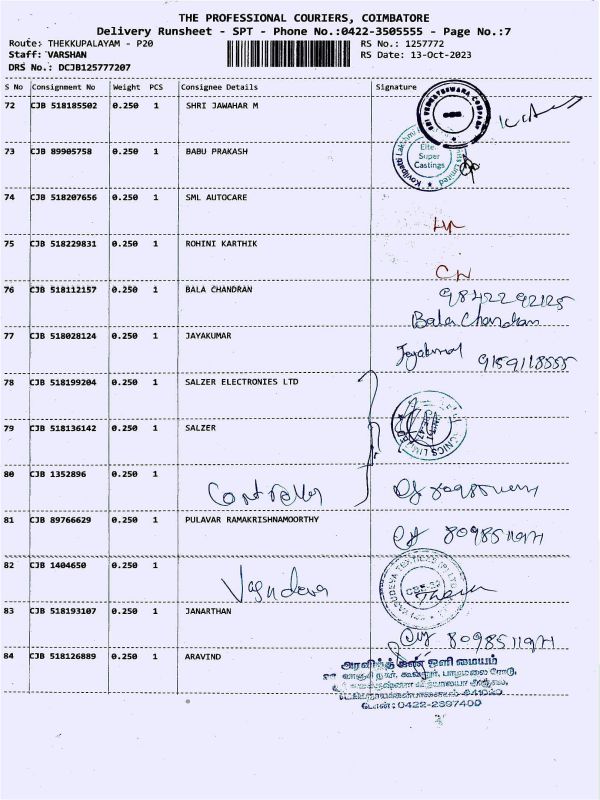 THE PROFESSIONAL COURIERS, COIMBATORE
Delivery Runsheet - SPT - Phone No.:0422-3505555 - Page No.:7
Route: THEKKUPALAYAM - P20 RS No.: 1257772
Staff: VARSHAN RS Date: 13-Oct-2023
DRS No.: DCJB125777207
S No Consignment No Weight PCS Consignee Details Signature
72 CJB 518185502 0.250 1 SHRI JAWAHAR M
SRI VENKATESWARA COMPANY
73 CJB 89905758 0.250 1 BABU PRAKASH
Elite
Super
Castings
74 CJB 518207656 0.250 1 SML AUTOCARE
75 CJB 518229831 0.250 1 ROHINI KARTHIK
76 CJB 518112157 0.250 1 BALA CHANDRAN
9842292125
Bala Chandran
77 CJB 518028124 0.250 1 JAYAKUMAR
Jayakumar 9159118555
78 CJB 518199204 0.250 1 SALZER ELECTRONIES LTD
79 CJB 518136142 0.250 1 SALZER
80 CJB 1352896 0.250 1
Controller
81 CJB 89766629 0.250 1 PULAVAR RAMAKRISHNAMOORTHY
8098511971
82 CJB 1404650 0.250 1
Vasudeva
83 CJB 518193107 0.250 1 JANARTHAN
8098511971
84 CJB 518126889 0.250 1 ARAVIND
அரவிந்த் கண் ஒளி மையம்
போன் : 0422-2397400